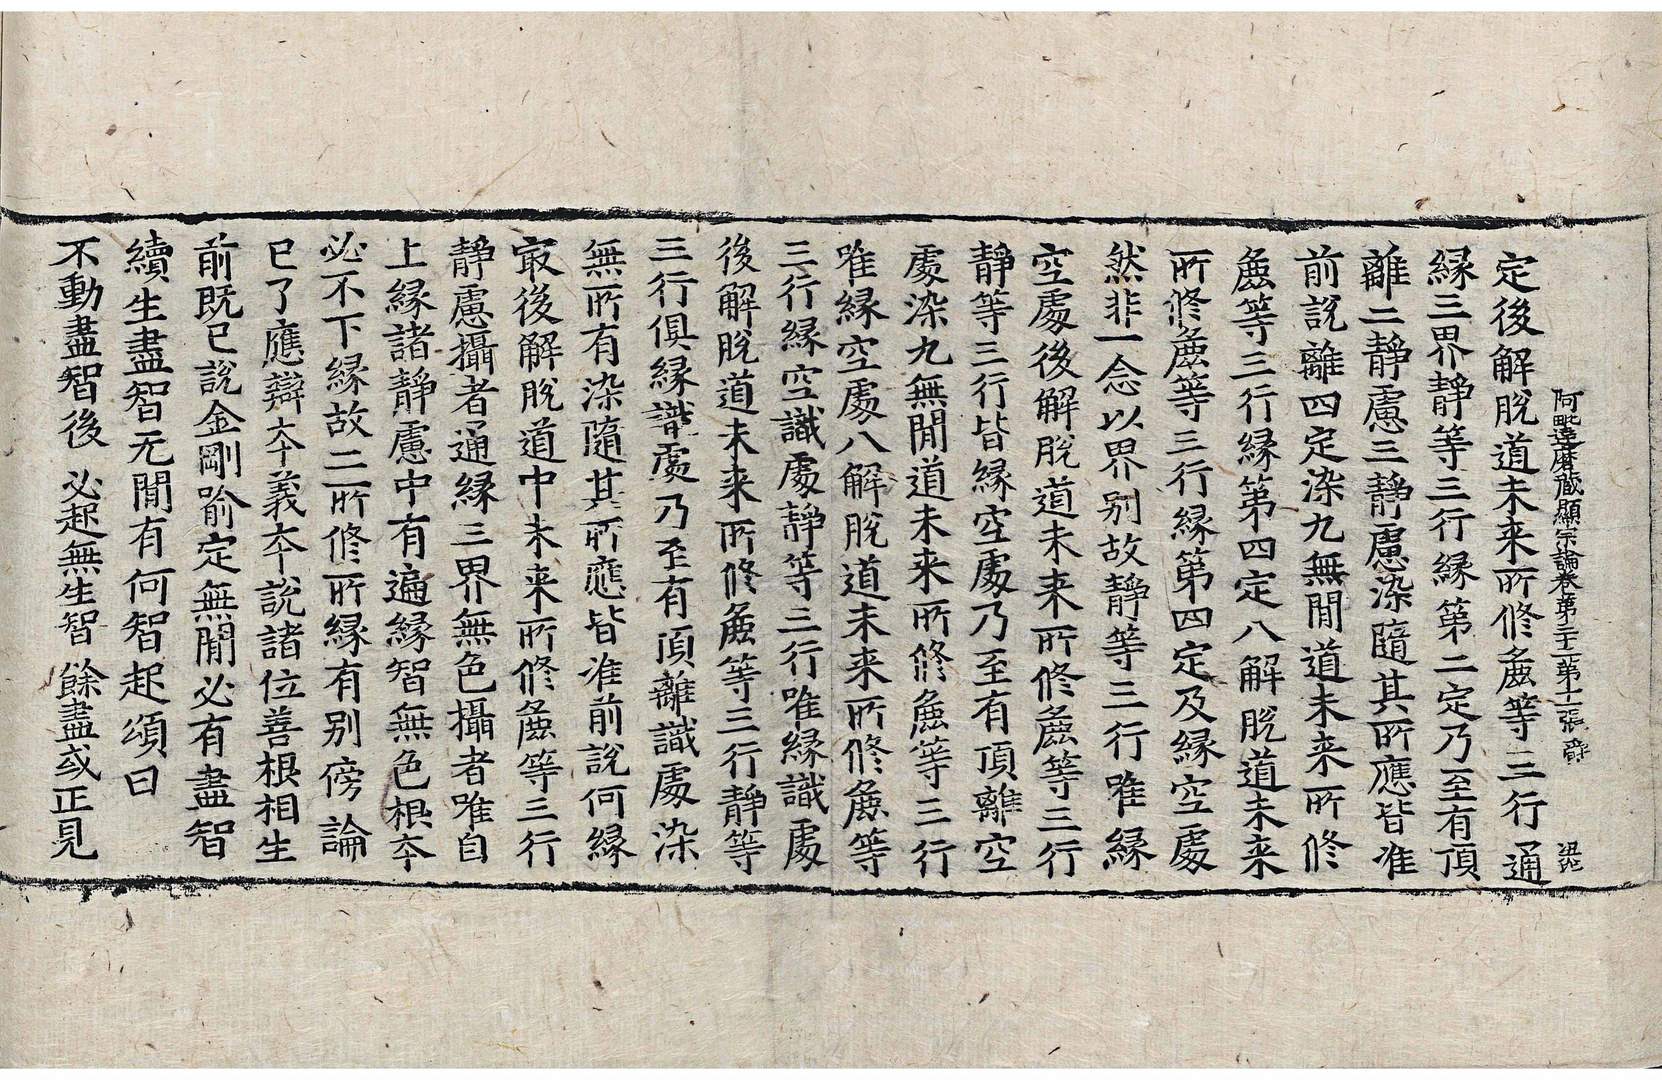 阿毗達磨藏顯宗論卷第三十三 第十二張
定後解脫道未来所修麁等三行通
縁三界靜等三行縁第二定乃至有頂
離二靜慮三靜慮染隨其所應皆准
前說離四定染九無間道未来所修
麁等三行縁第四定八解脫道未来
所修麁等三行縁第四定及縁空處
然非一念以界别故靜等三行唯縁
空處後解脫道未来所修麁等三行
靜等三行皆縁空處乃至有頂離空
處染九無間道未来所修麁等三行
唯縁空處八解脫道未来所修麁等
三行縁空識處靜等三行唯縁識處
後解脫道未来所修麁等三行靜等
三行俱縁識處乃至有頂離識處染
無所有染隨其所應皆准前說何縁
㝡後解脫道中未来所修麁等三行
靜慮攝者通縁三界無色攝者唯自
上縁諸靜慮中有遍縁智無色根夲
必不下縁故二所修所縁有别傍論
已了應辯夲義夲說諸位善根相生
前既已說金剛喻定無間必有盡智
續生盡智无間有何智起頌曰
不動盡智後 必起無生智 餘盡或正見